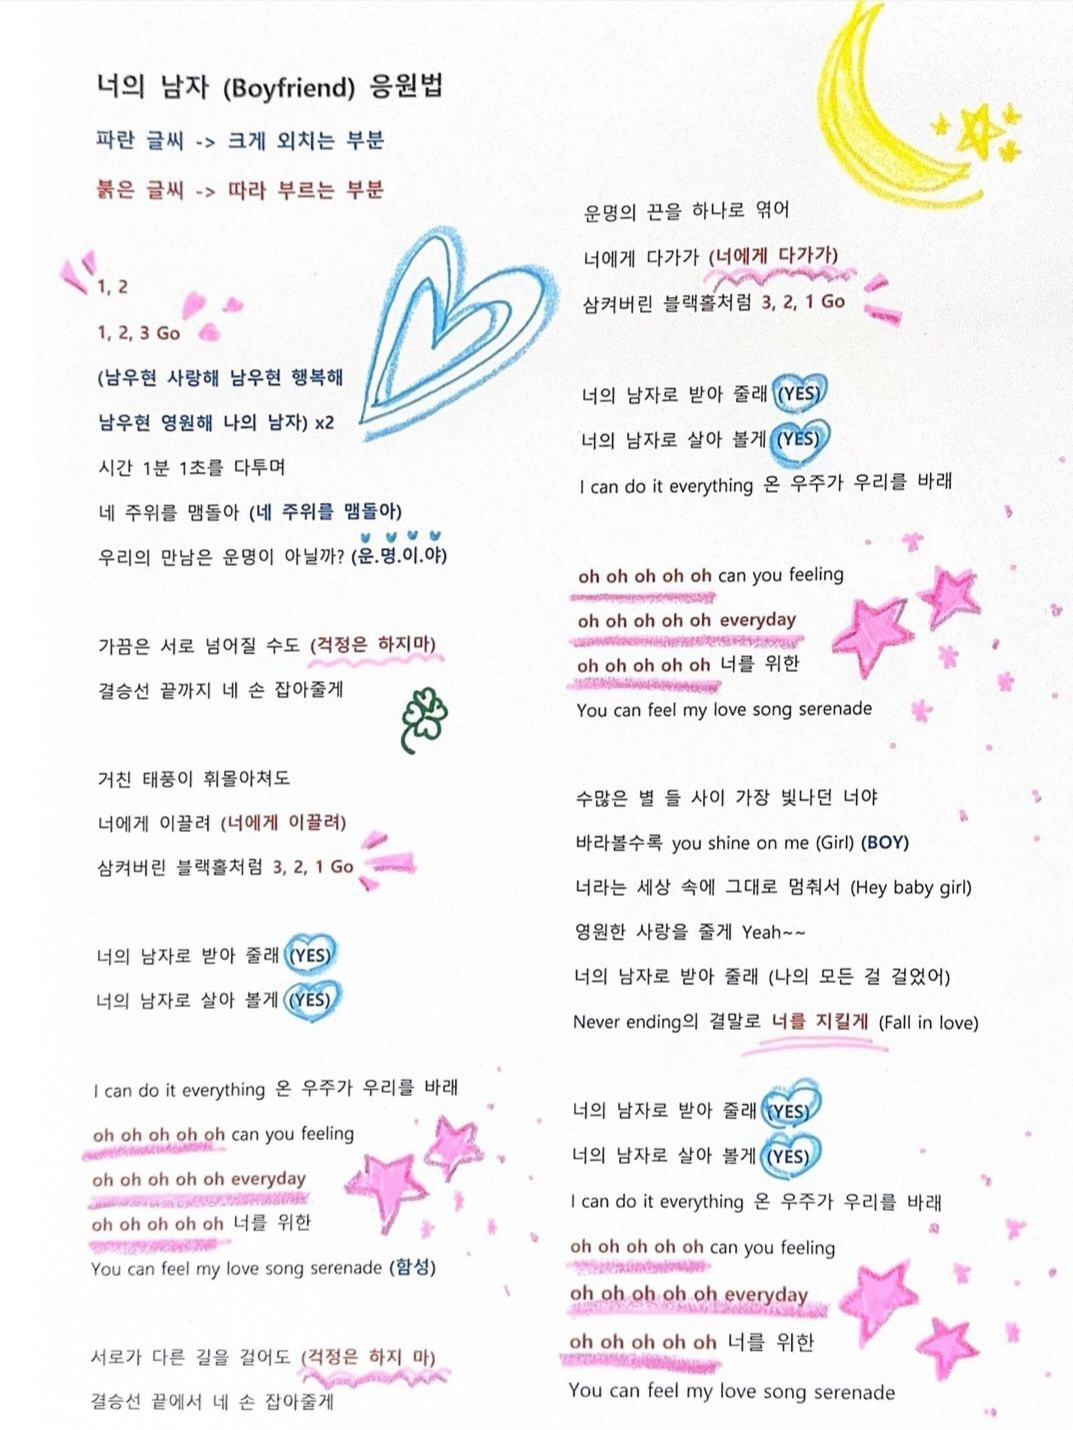 너의 남자 (Boyfriend) 응원법
파란 글씨 -> 크게 외치는 부분
붉은 글씨 -> 따라 부르는 부분
1, 2
1, 2, 3 Go
(남우현 사랑해 남우현 행복해
남우현 영원해 나의 남자) x2
시간 1분 1초를 다투며
네 주위를 맴돌아 (네 주위를 맴돌아)
우리의 만남은 운명이 아닐까? (운.명.이.야)
가끔은 서로 넘어질 수도 (걱정은 하지마)
결승선 끝까지 네 손 잡아줄게
거친 태풍이 휘몰아쳐도
너에게 이끌려 (너에게 이끌려)
삼켜버린 블랙홀처럼 3, 2, 1 Go
너의 남자로 받아 줄래 (YES)
너의 남자로 살아 볼게 (YES)
I can do it everything 온 우주가 우리를 바래
oh oh oh oh oh can you feeling
oh oh oh oh oh everyday
oh oh oh oh oh 너를 위한
You can feel my love song serenade (함성)
서로가 다른 길을 걸어도 (걱정은 하지 마)
결승선 끝에서 네 손 잡아줄게
운명의 끈을 하나로 엮어
너에게 다가가 (너에게 다가가)
삼켜버린 블랙홀처럼 3, 2, 1 Go
너의 남자로 받아 줄래 (YES)
너의 남자로 살아 볼게 (YES)
I can do it everything 온 우주가 우리를 바래
oh oh oh oh oh can you feeling
oh oh oh oh oh everyday
oh oh oh oh oh 너를 위한
You can feel my love song serenade
수많은 별 들 사이 가장 빛나던 너야
바라볼수록 you shine on me (Girl) (BOY)
너라는 세상 속에 그대로 멈춰서 (Hey baby girl)
영원한 사랑을 줄게 Yeah~~
너의 남자로 받아 줄래 (나의 모든 걸 걸었어)
Never ending의 결말로 너를 지킬게 (Fall in love)
너의 남자로 받아 줄래 (YES)
너의 남자로 살아 볼게 (YES)
I can do it everything 온 우주가 우리를 바래
oh oh oh oh oh can you feeling
oh oh oh oh oh everyday
oh oh oh oh oh 너를 위한
You can feel my love song serenade